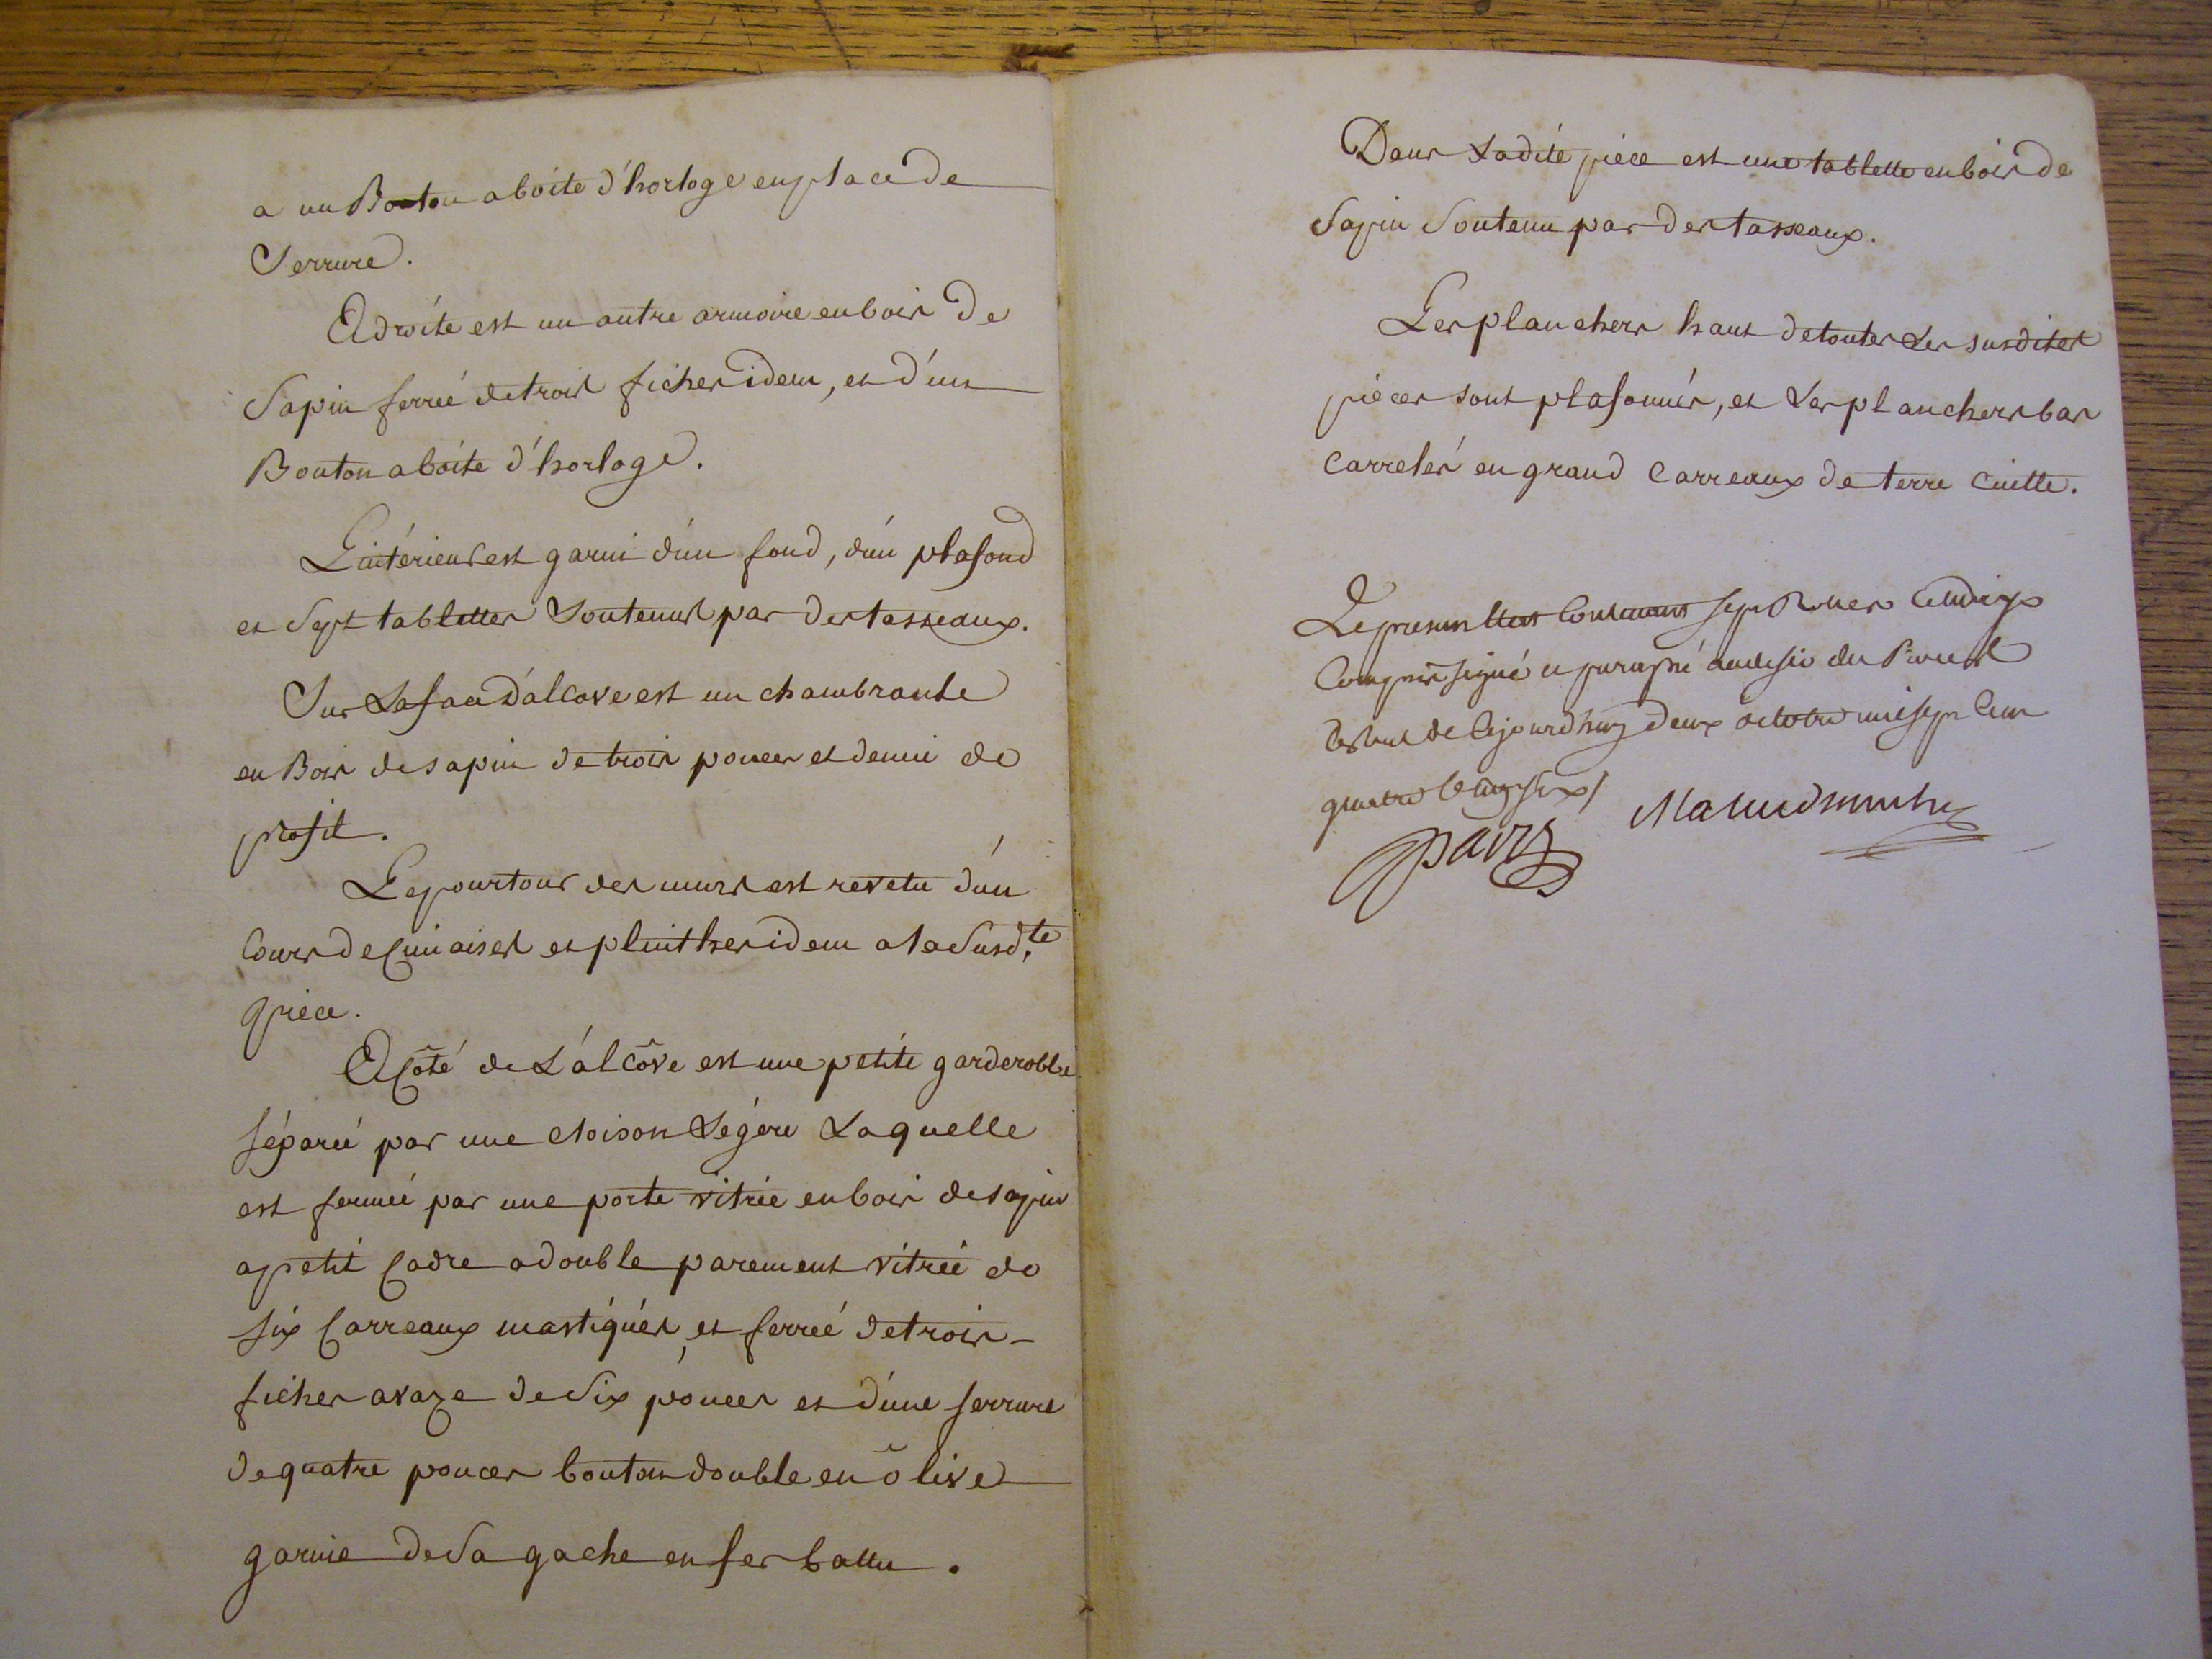 a un Bouton a boite d'horloge en place de
Serrure.
A droite est un autre armoire en bois de
Sapin ferreé de trois fiches idem, et d'un
Bouton a boite d'horloge.
L'intérieur est garni d'un fond, d'un plafond
et Sept tablettes Soutenus par des tasseaux.
Sur La face d'alcove est un chambranle
en Bois de sapin de trois pouces et demi de
profil.
Le pourtour des murs est revetu d'un
Cours de Cimaises et plinthes idem a la Susd.te
piece.
A Côté de L'álcôve est une petite garderobbe
séparée par une cloison Légére Laquelle
est fermeé par une porte vitrée en bois de sapin
a petit Cadre a double parement vitreé de
six Carreaux mastiqués, et ferreé de trois
fiches a vaze de Six pouces et d'une serrure
de quatre pouces bouton double en ôlive
garnie de Sa gache en fer battu.
Dans Ladite piece est une tablette en bois de
Sapin Soutenu par des tasseaux.
Les planchers haut de toutes Les susdites
pièces sont plafonnés, et Les planchers bas
Carrelés en grand Carreaux de terre Cuitte.
Le present Etat Contenant sept Rolles
Compris signé et paraphé au desir du
de Cejourdhuy deux octobre mil sept Cent
quatre vingt six /